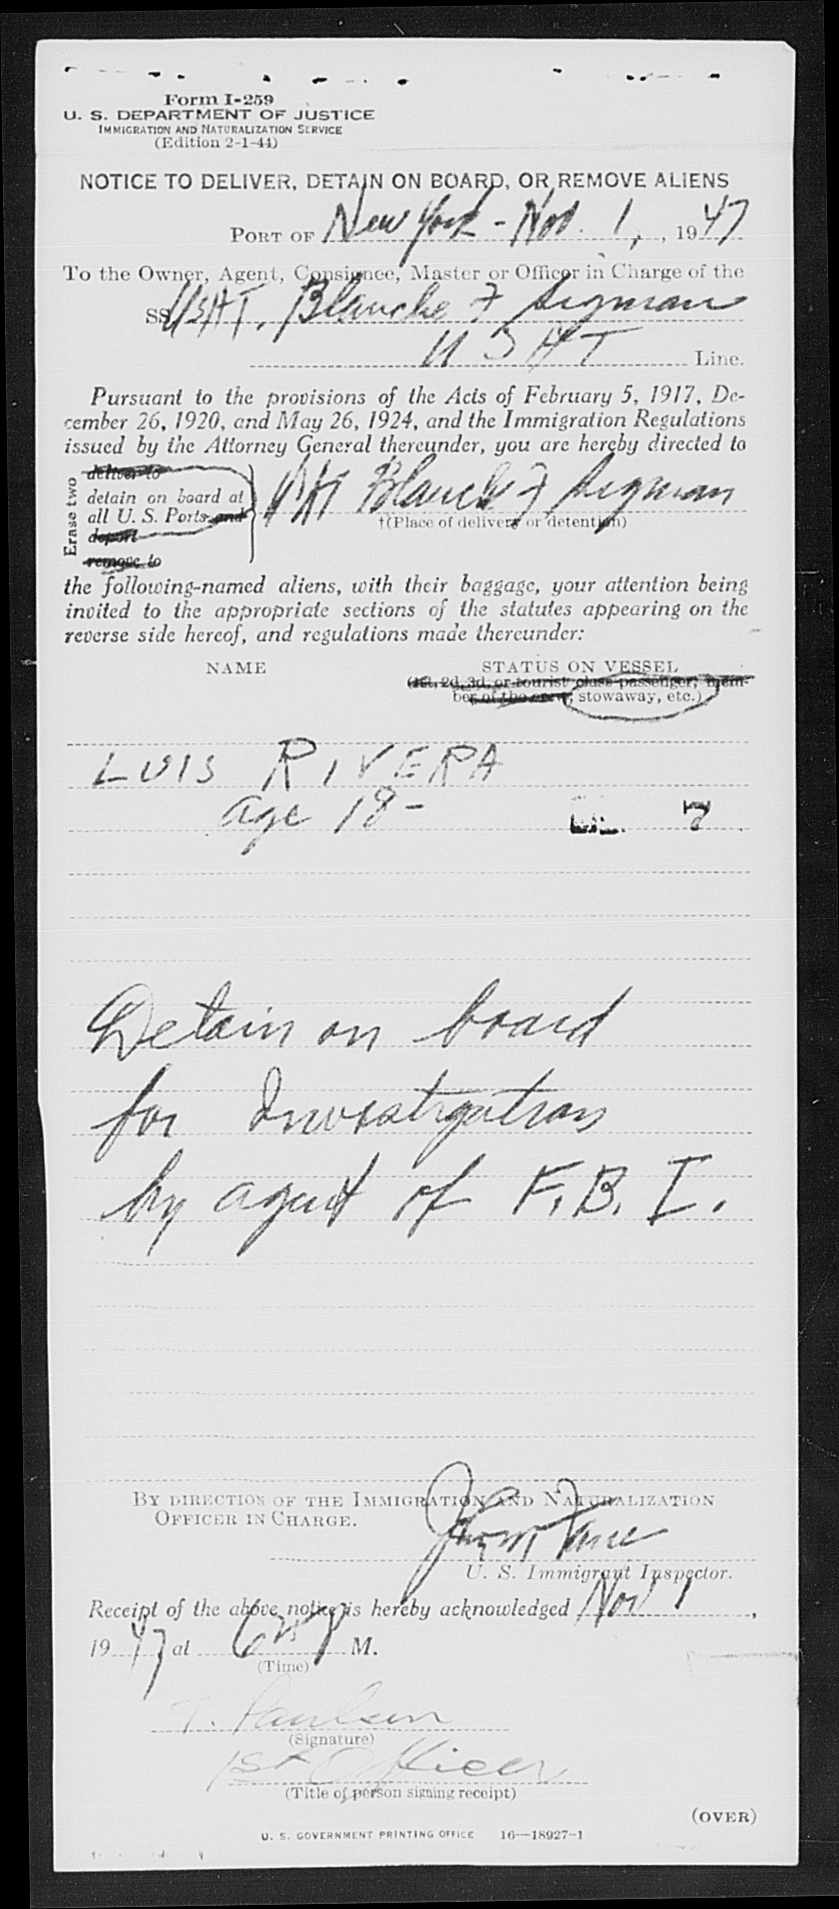 Form I-259
U. S. DEPARTMENT OF JUSTICE
IMMIGRATION AND NATURALIZATION SERVICE
(Edition 2-1-44)
NOTICE TO DELIVER, DETAIN ON BOARD, OR REMOVE ALIENS
PORT OF New York - Nov. 1, , 1947
To the Owner, Agent, Consignee, Master or Officer in Charge of the
SS USAT. Blanche F Sigman
USAT Line.
Pursuant to the provisions of the Acts of February 5, 1917, De-
cember 26, 1920, and May 26, 1924, and the Immigration Regulations
issued by the Attorney General thereunder, you are hereby directed to
Erase two
deliver to
detain on board at
all U. S. Ports and
deport
remove to
Blanche F Sigman
†(Place of delivery or detention)
the following-named aliens, with their baggage, your attention being
invited to the appropriate sections of the statutes appearing on the
reverse side hereof, and regulations made thereunder:
NAME STATUS ON VESSEL
(1st, 2d, 3d, or tourist class passenger, mem-
ber of the crew, stowaway, etc.)
LUIS RIVERA
age 18 -
7
Detain on board
for Investigation
by agent of F. B. I.
BY DIRECTION OF THE IMMIGRATION AND NATURALIZATION
OFFICER IN CHARGE.
U. S. Immigrant Inspector.
Receipt of the above notice is hereby acknowledged Nov 1 ,
1947 at M.
(Time)
Paulsen
(Signature)
1st Officer
(Title of person signing receipt)
(OVER)
U. S. GOVERNMENT PRINTING OFFICE 16—18927-1